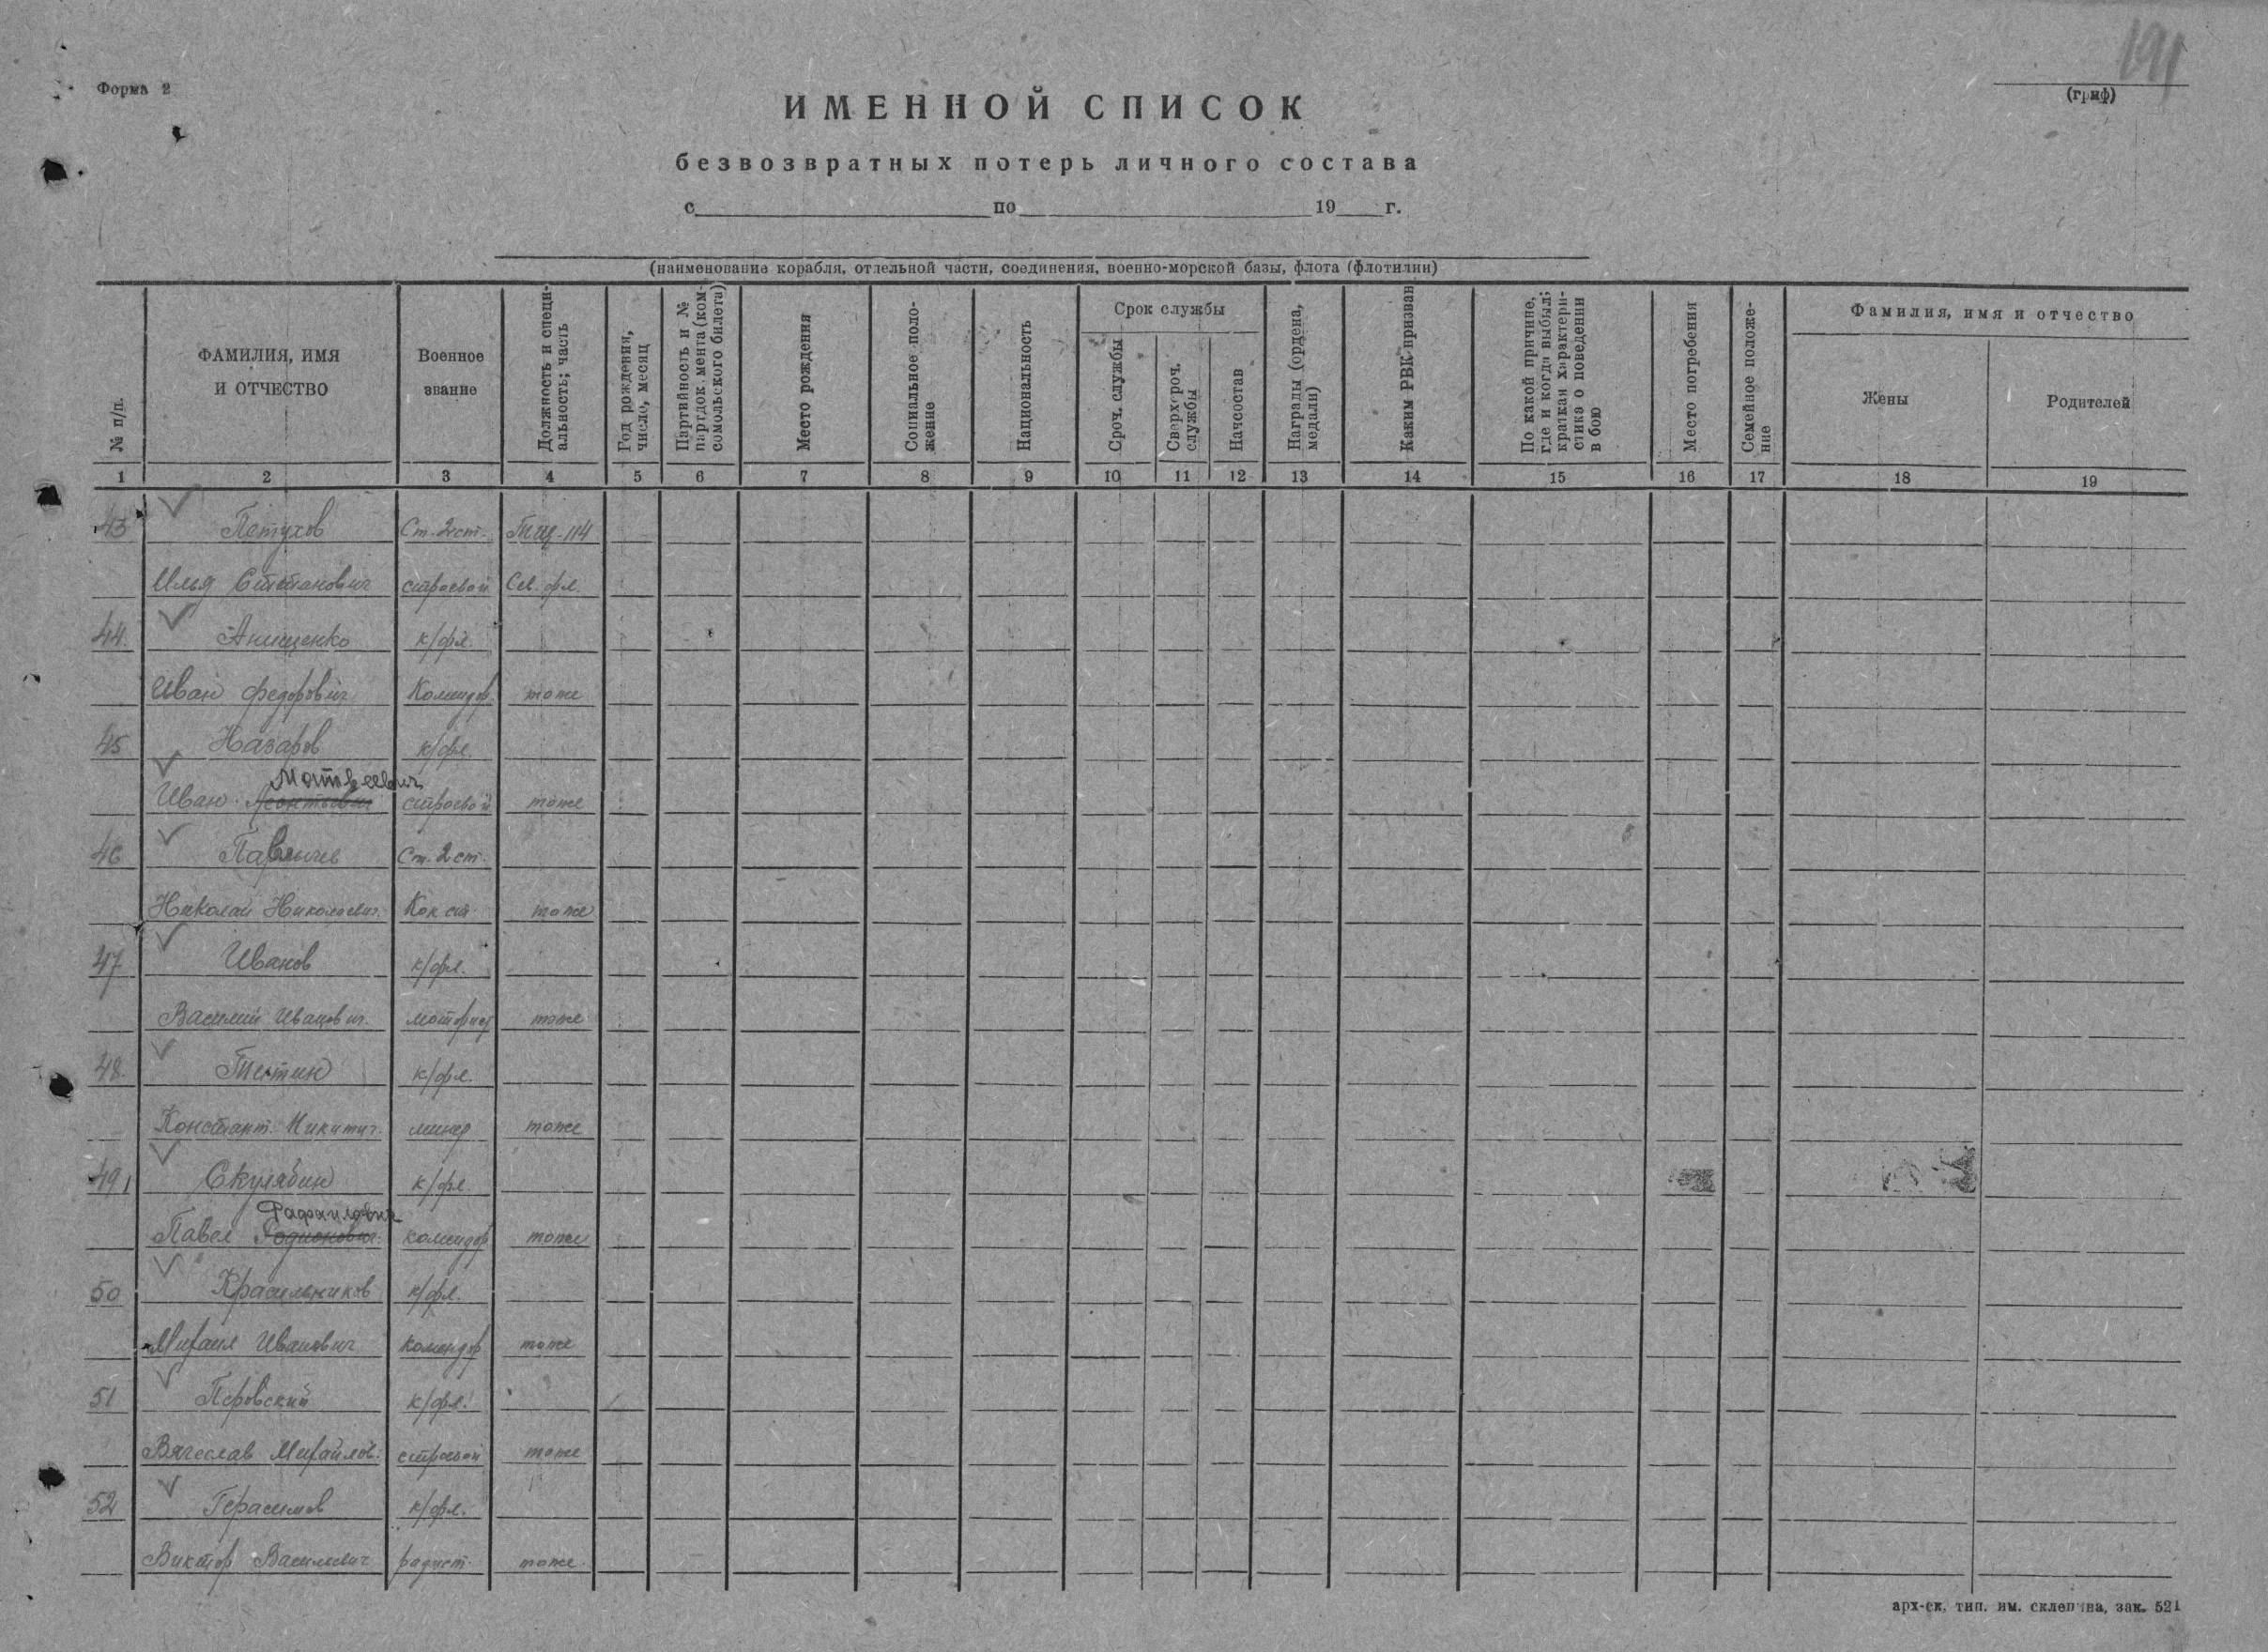 191
Форма 2
(гриф)
ИМЕННОЙ СПИСОК
безвозвратных потерь личного состава
с по 19 г.
(наименование корабля, отдельной части, соединения, военно-морской базы, флота (флотилии)
№ п/п.
ФАМИЛИЯ, ИМЯ
И ОТЧЕСТВО
Военное
звание
Должность и специ-
альность; часть
Год рождения,
число, месяц
Партийность и №
партдокумента (ком-
сомольского билета)
Место рождения
Социальное поло-
жение
Национальность
Срок службы
Сроч. службы
Сверхсроч.
службы
Начсостав
Награды (ордена,
медали)
Каким РВК призван
По какой причине,
где и когда выбыл;
краткая характери-
стика о поведении
в бою
Место погребения
Семейное положе-
ние
Фамилия, имя и отчество
Жены
Родителей
1 2 3 4 5 6 7 8 9 10 11 12 13 14 15 16 17 18 19
43 Петухов Ст. 2 ст. ТЩ-114
Илья Степанович строевой Сев. фл.
44. Анищенко к/фл.
Иван Федорович Комендор тоже
45 Назаров к/фл.
Матвеевич
Иван Леонтьевич строевой тоже
46 Павлычев Ст. 2 ст.
Николай Николаевич. Кок ст. тоже
47 Иванов к/фл.
Василий Иванович. моторист тоже
48. Тентин к/фл.
Константи. Никитич. минер тоже
49 Скулябин к/фл.
Рафаилович
Павел Родионович. комендор тоже
50 Красильников к/фл.
Михаил Иванович комендор тоже
51 Перовский к/фл.
Вячеслав Михайлов. строевой тоже
52 Герасимов к/фл.
Виктор Васильевич радист. тоже.
арх-ск. тип. им. склепина, зак. 521